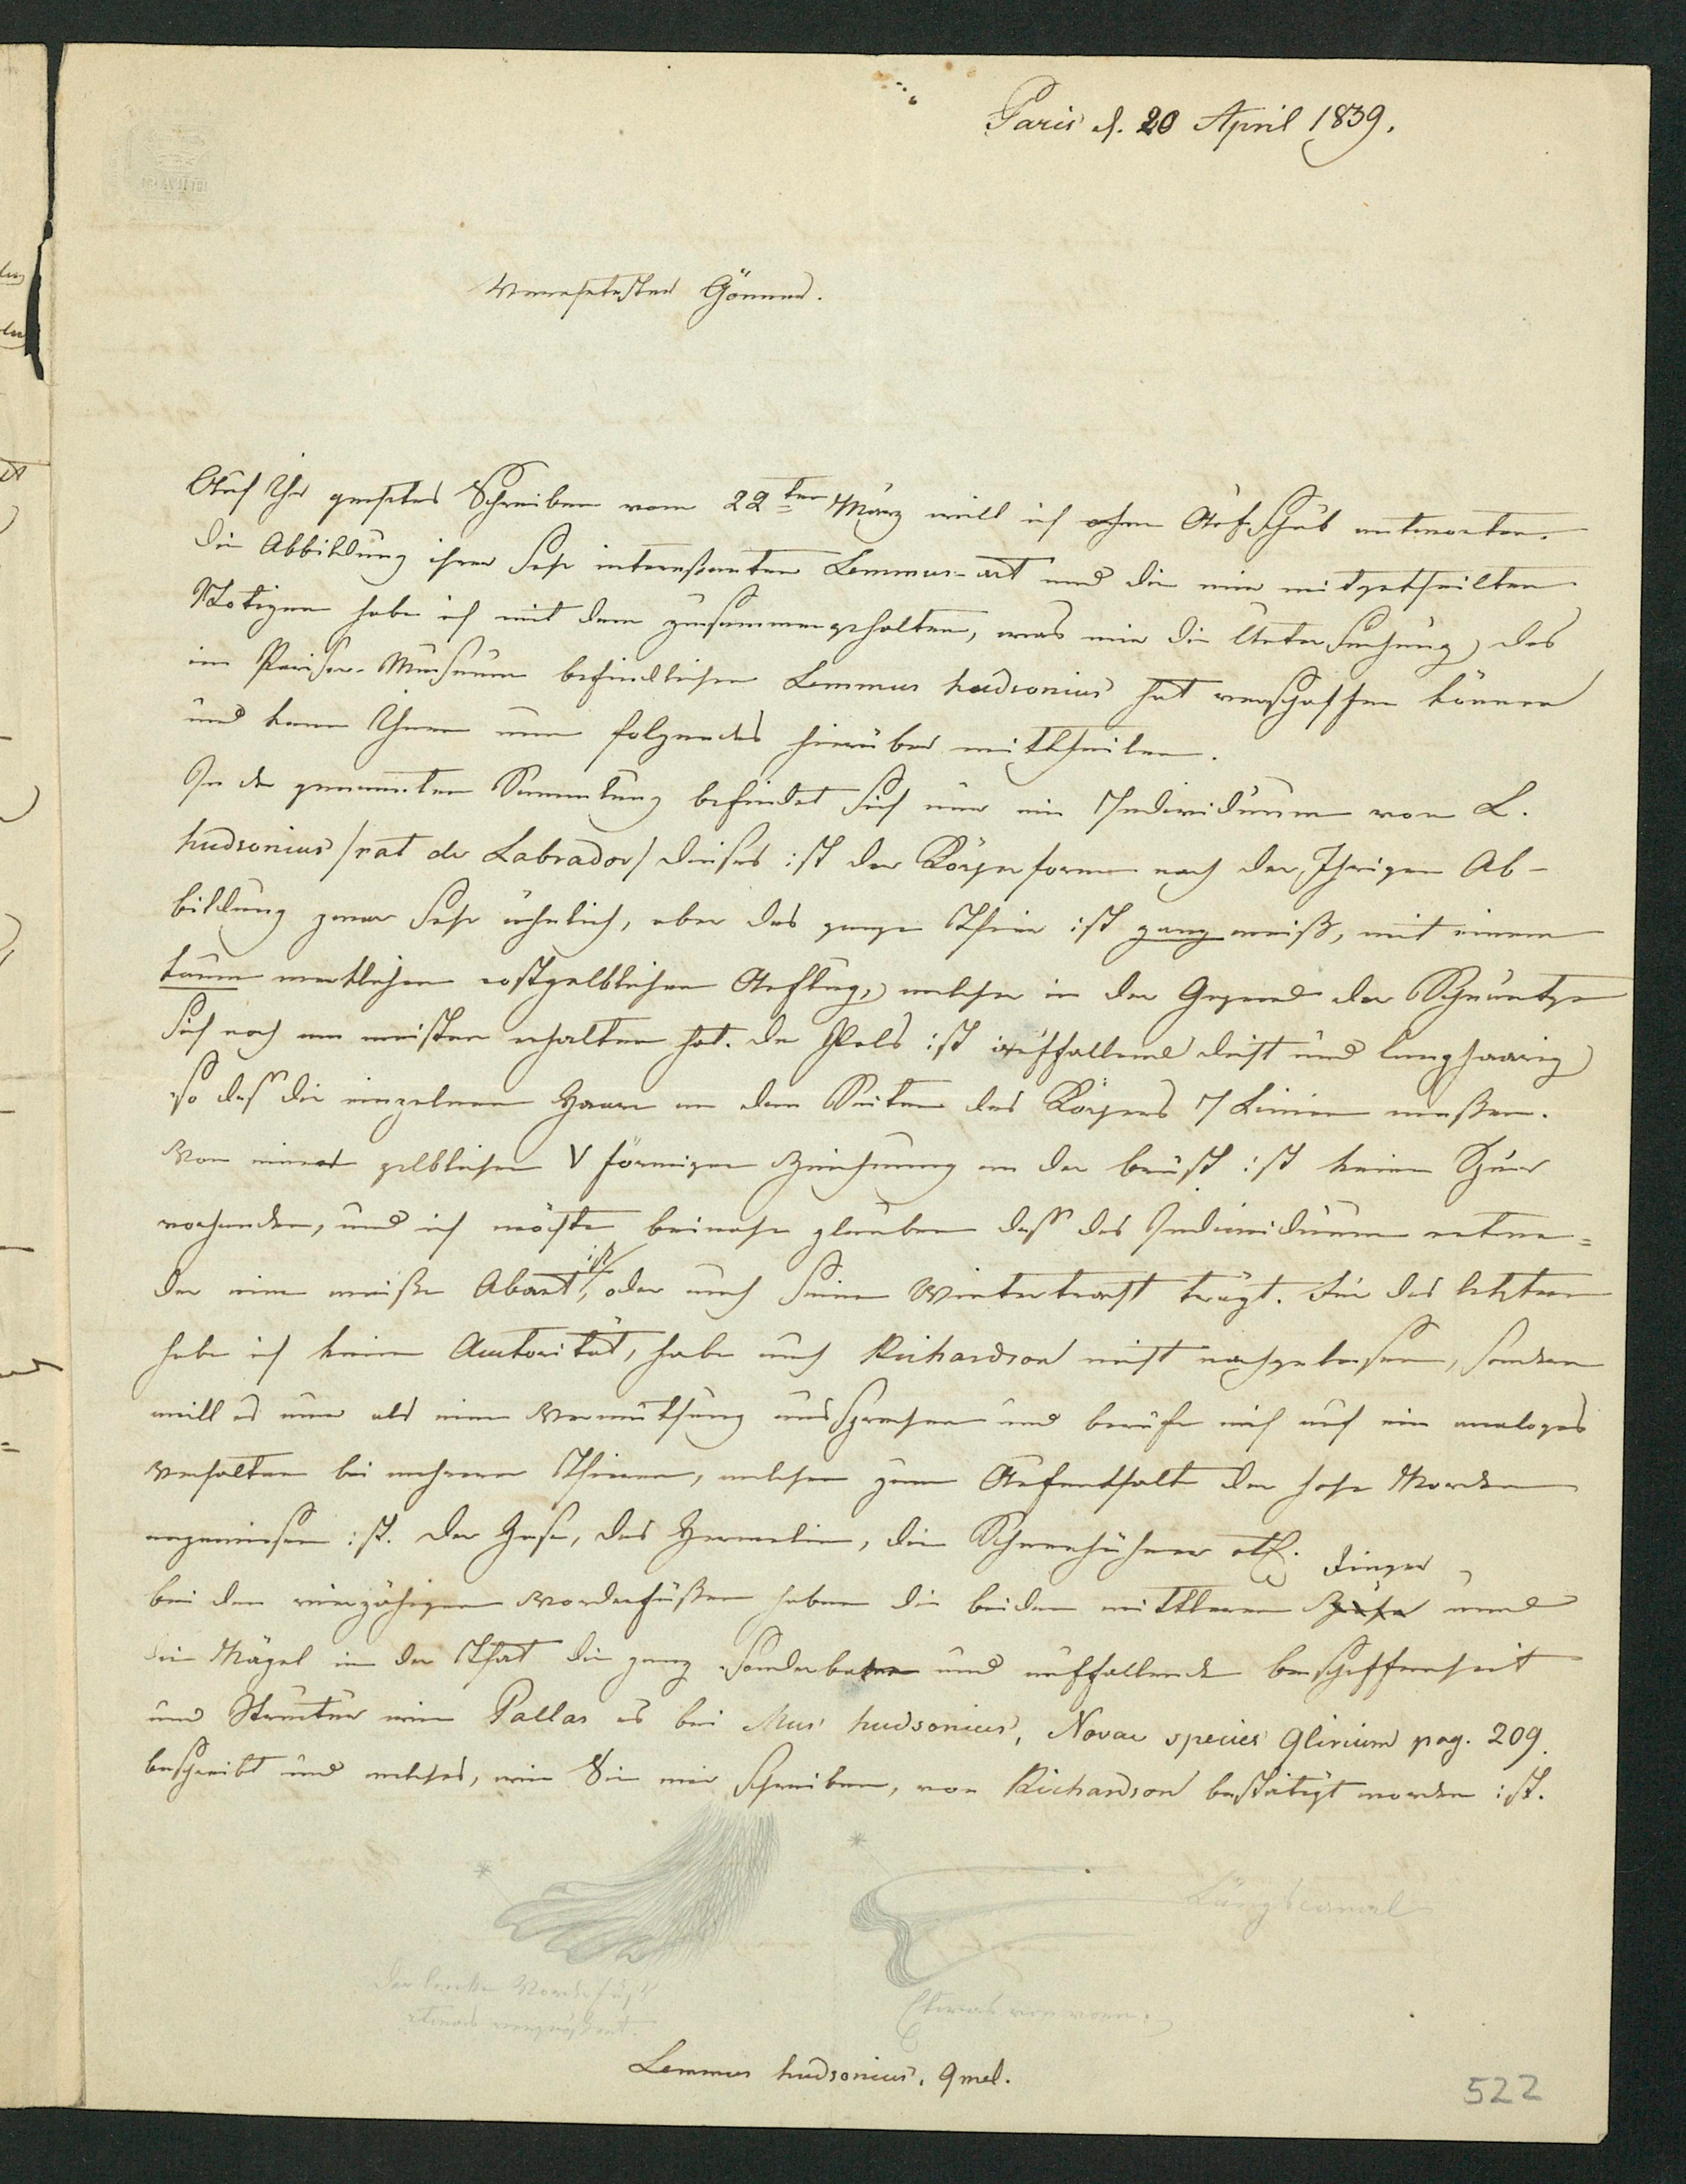 Paris d. 20 April 1839.
Verehrtester Gönner.
Auf Ihr geehrtes Schreiben vom 22ten März will ich ohne Aufschub antworten.
Die Abbildung ihrer sehr interessanten Lemmus-art und die mir mitgetheilten
Notizen habe ich mit dem zusammengehalten, was mir die Untersuchung des
im Pariser-Museum befindlichen Lemmus hudsonius hat verschaffen können
und kann Ihnen nun folgendes hierüber mittheilen.
In der genannten Sammlung befindet sich nur ein Individuum von L.
hudsonius /rat de Labrador/ dieses ist der Körperform nach der Ihrigen Ab-
bildung zwar sehr ähnlich, aber das ganze Thier ist ganz weiß, mit einem
kaum merklichen rostgelblichen Anflug, welcher in der Gegend der Schnautze
sich noch am meisten erhalten hat. Der Pelz ist auffallend dicht und langhaarig
so daß die einzelnen Haare an den Seiten des Körpers 7 Linien maßen.
Von einer gelblichen V förmigen Zeichnung an der Brust ist keine Spur
vorhanden, und ich möchte beinahe glauben daß das Individuum entwe=
der eine weiße Abart ist, oder auch seine Wintertracht trägt. Für das letztere
habe ich keine Autorität, habe auch Richardson nicht nachgelesen, sondern
will es nur als eine Vermuthung aussprechen und berufe mich auf ein analoges
Verhalten bei mehreren Thieren, welchen zum Aufenthalt der hohe Norden
angewiesen ist. Der Hase, das Hermelin, die Schneehühner etc.
bei den vierzähigen Vorderfüßen haben die beiden mittleren Finger und
die Nägel in der That die ganz sonderbare und auffallende Beschaffenheit
und Structur wie Pallas es bei Mus hudsonius, Novae species Glirium pag. 209.
beschreibt und welches, wie Sie mir schreiben, von Richardson bestätigt worden ist.
Längscanal
Der linke Vorderfuß
etwas vergrößert.
Etwas von vorn.
Lemmus hudsonius, Gmel.
522